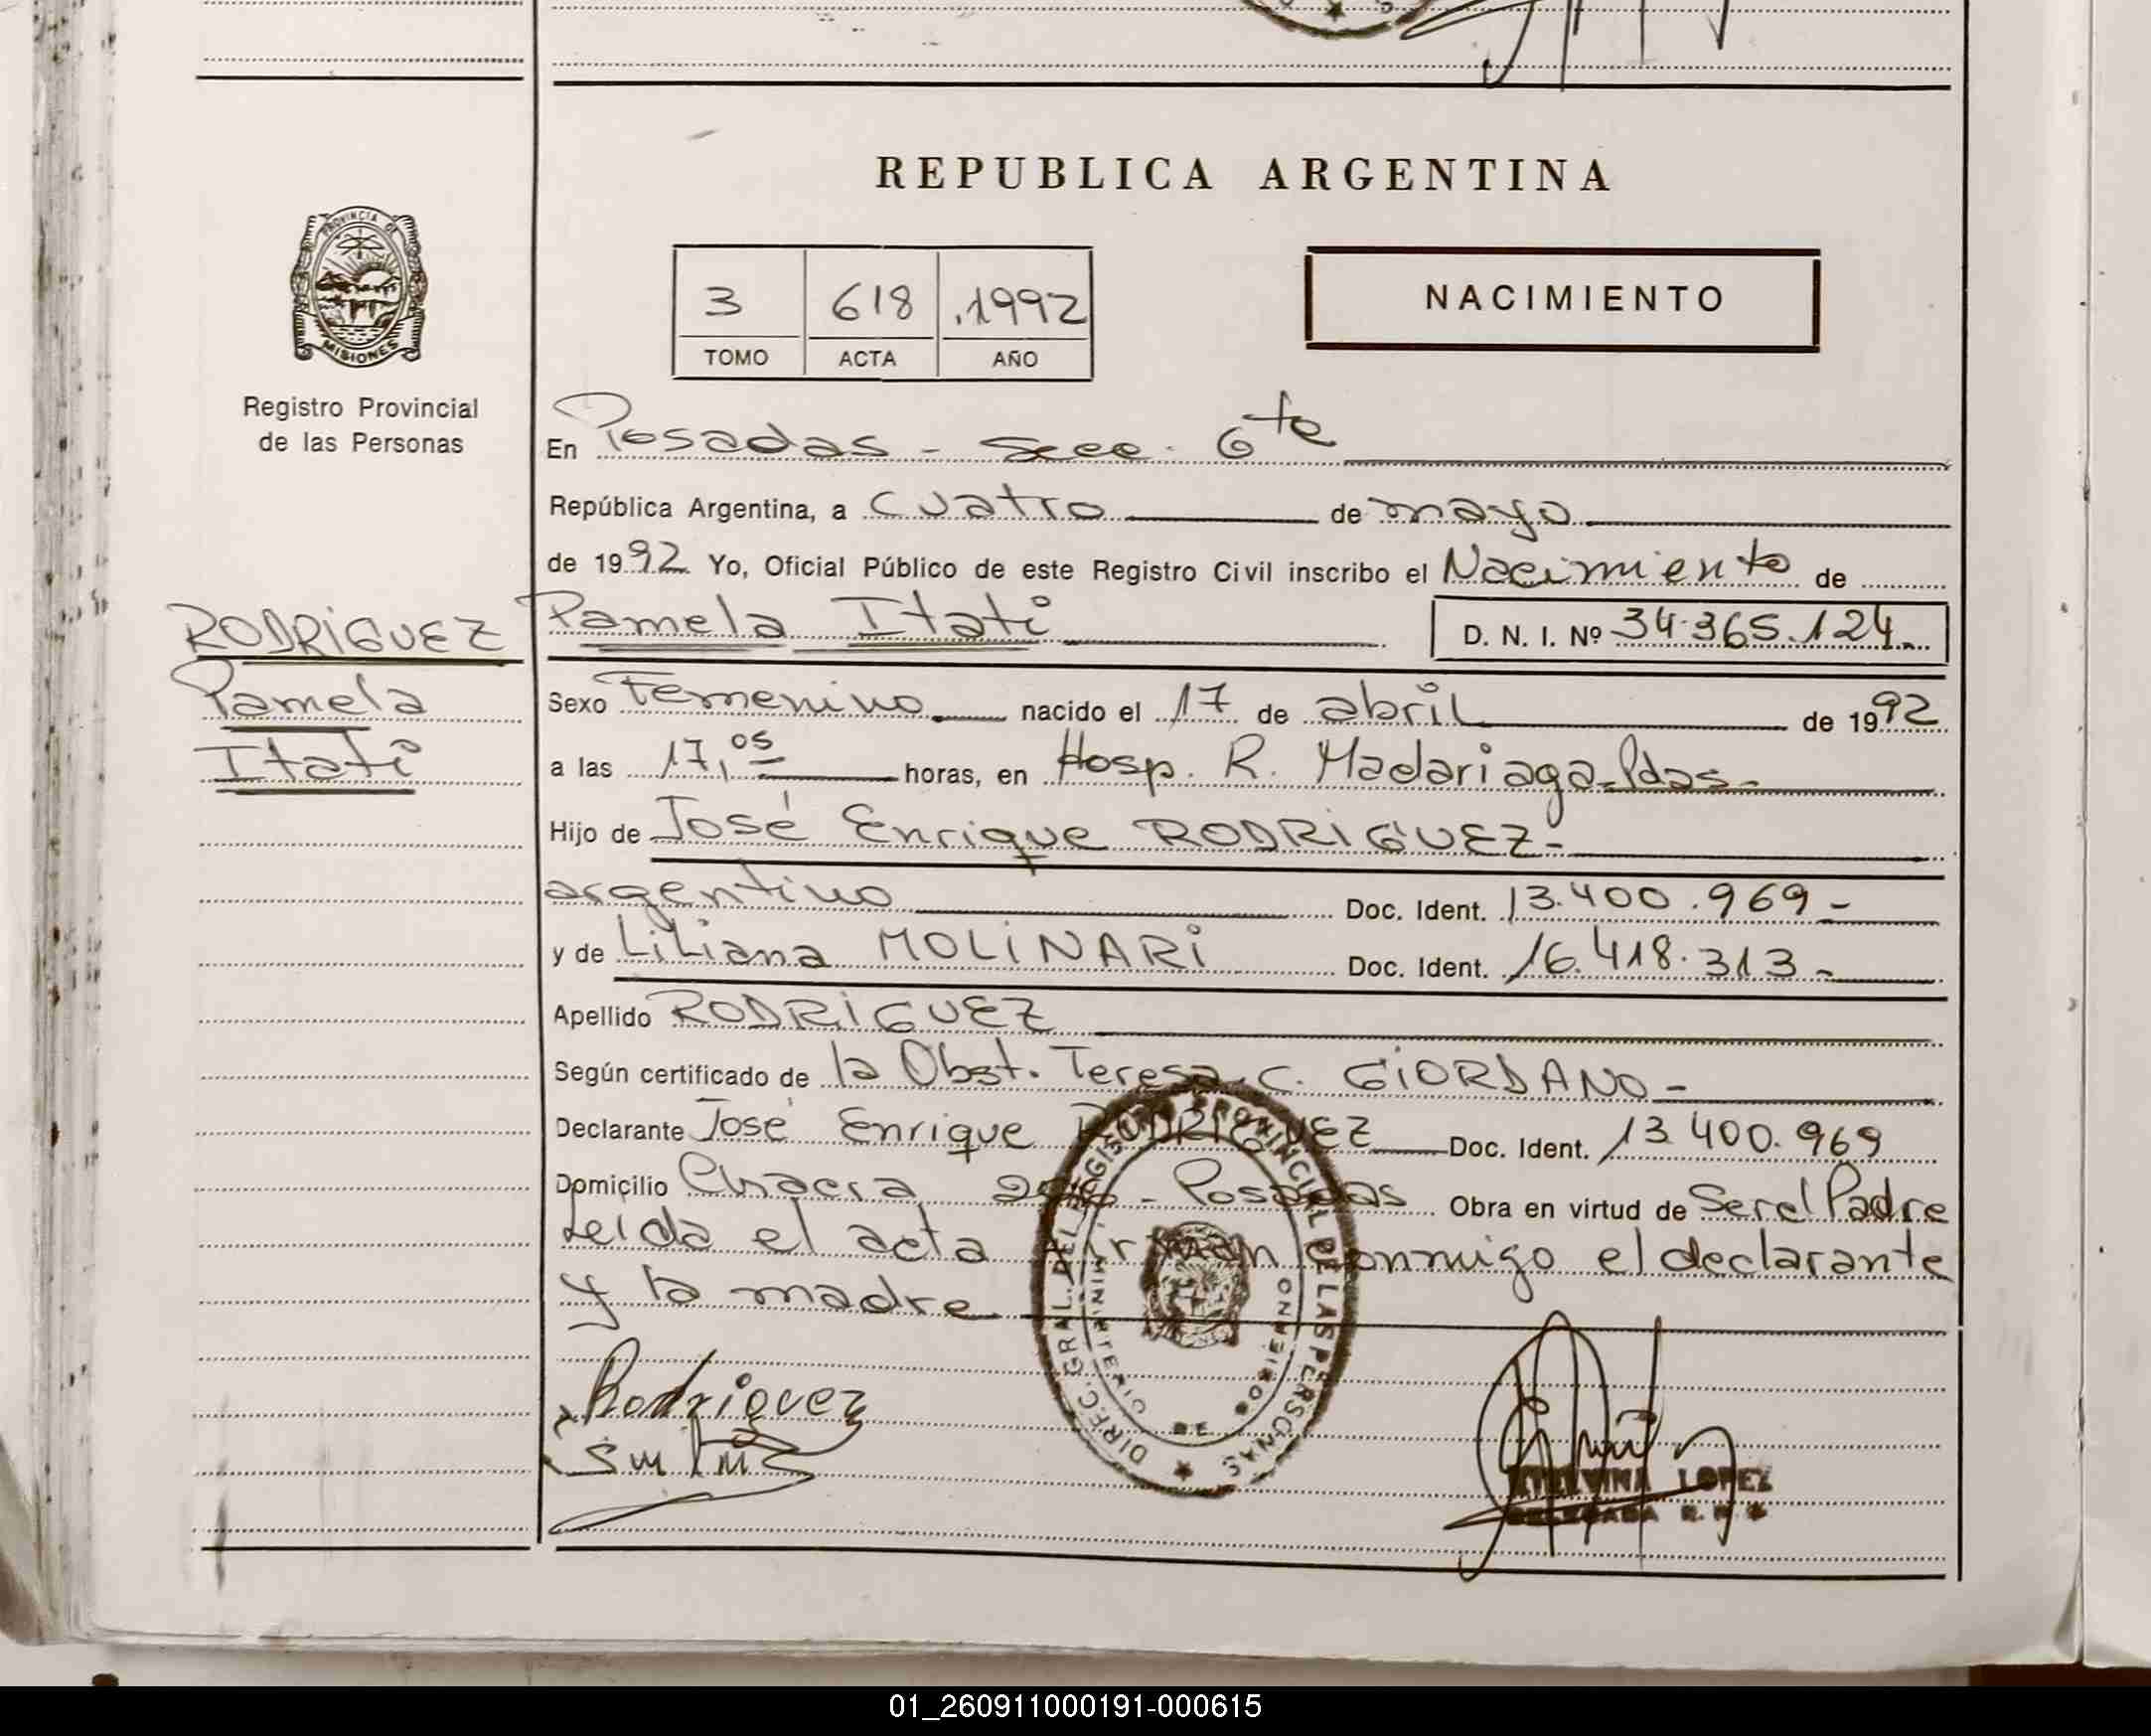 REPUBLICA ARGENTINA
PROVINCIA DE
MISIONES
Registro Provincial
de las Personas
3 618 1992
TOMO ACTA AÑO
NACIMIENTO
En Posadas - Secc. 6ta
República Argentina, a cuatro de mayo
de 1992 Yo, Oficial Público de este Registro Civil inscribo el Nacimiento de
RODRIGUEZ
Pamela
Itati
Pamela Itati D. N. I. Nº 34.365.124
Sexo Femenino nacido el 17 de abril de 1992
a las 17,05 horas, en Hosp. R. Madariaga - Pdas -
Hijo de José Enrique RODRIGUEZ -
argentino Doc. Ident. 13.400.969 -
y de Liliana MOLINARI Doc. Ident. 16.418.313 -
Apellido RODRIGUEZ
Según certificado de la Obst. Teresa C. GIORDANO -
Declarante José Enrique RODRIGUEZ Doc. Ident. 13.400.969
Domicilio Chacra - Posadas Obra en virtud de Ser el Padre
Leida el acta firman conmigo el declarante
y la madre
DIREC. GRAL. DEL REGISTRO PROVINCIAL DE LAS PERSONAS
Rodriguez
LOPEZ
DELEGADA
01_260911000191-000615